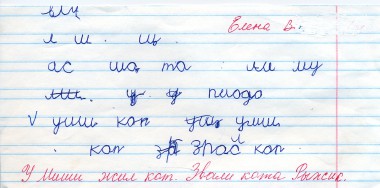 ыц
л ш. щ. Елена В.
ас ша та ли му
у у пиодо
V уши кот ущ уши
кот зрай кот
У Миши жил кот. Звали кота Рыжик.